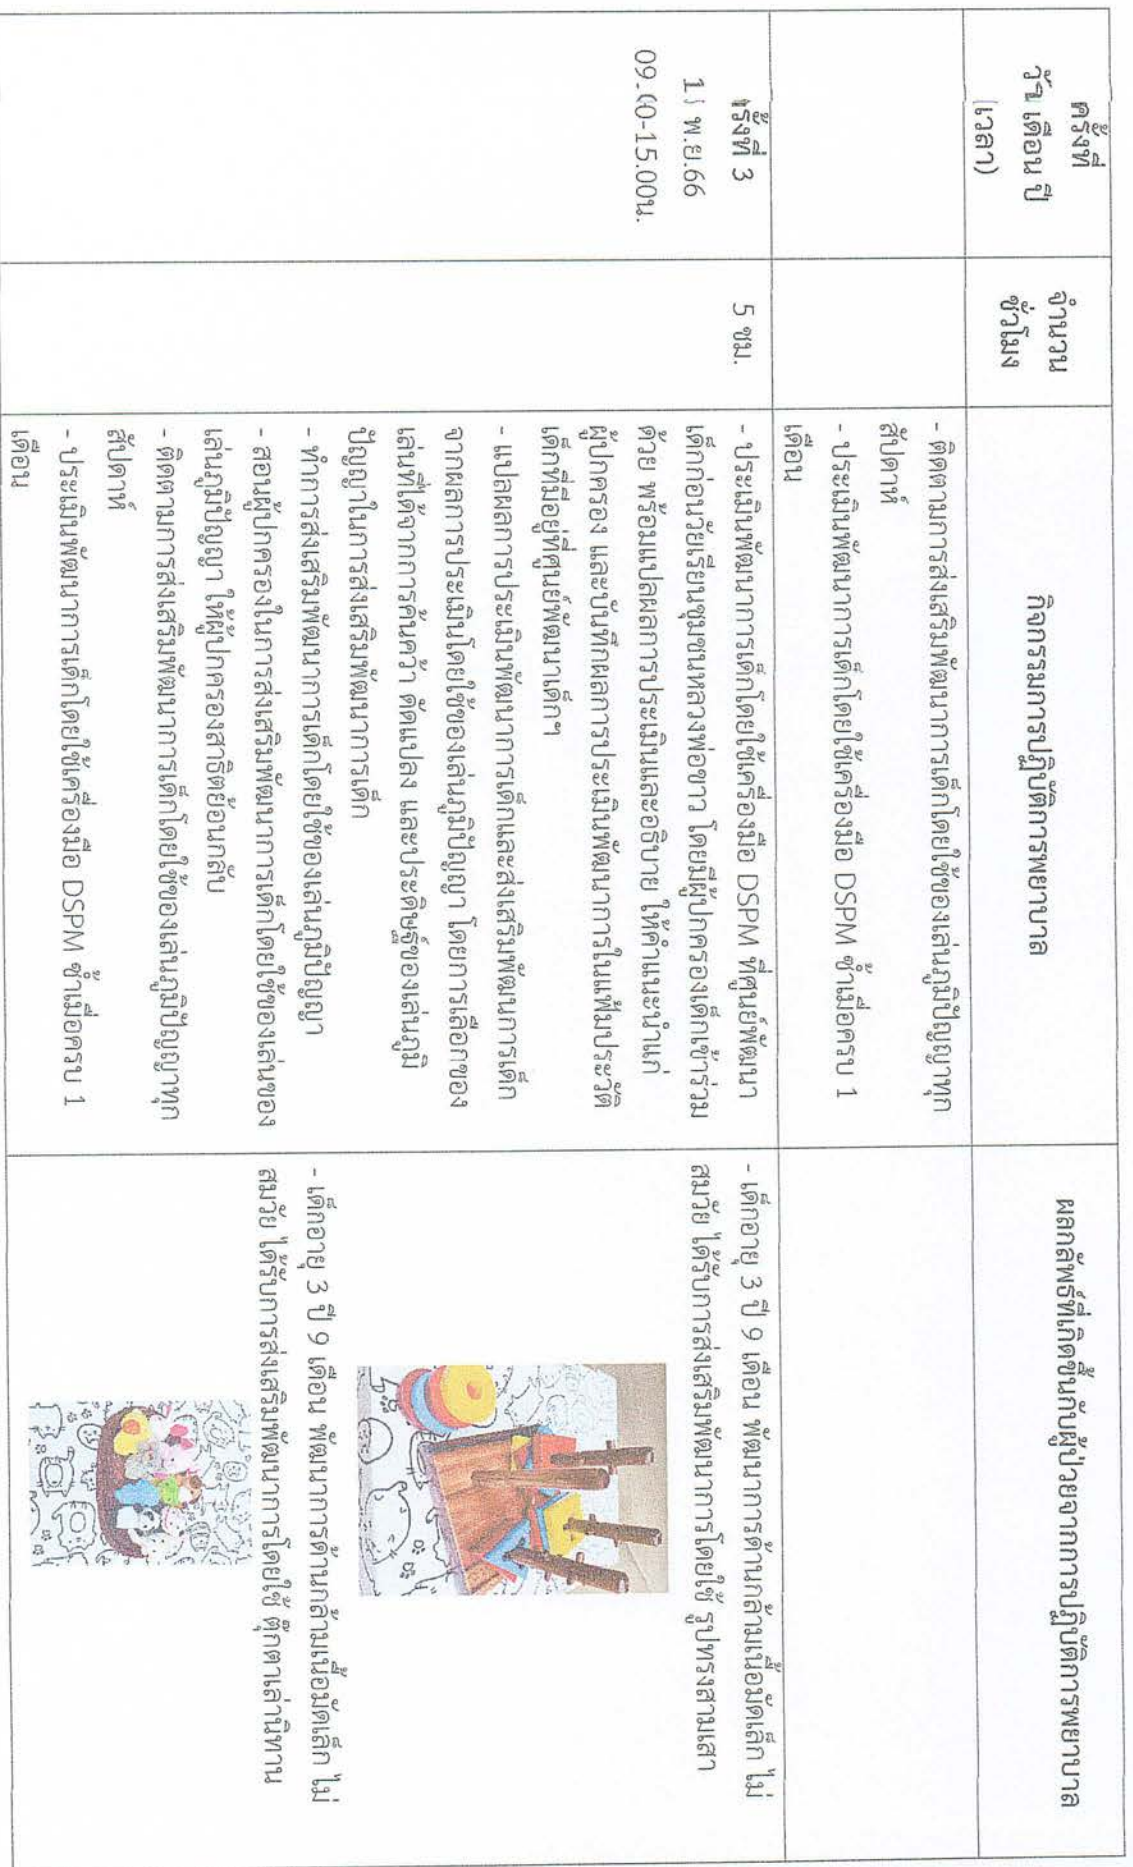 ครั้งที่
วัน เดือน ปี
(เวลา)
จำนวน
ชั่วโมง
กิจกรรมการปฏิบัติการพยาบาล
ผลลัพธ์ที่เกิดขึ้นกับผู้ป่วยจากการปฏิบัติการพยาบาล
- ติดตามการส่งเสริมพัฒนาการเด็กโดยใช้ของเล่นภูมิปัญญาทุก
สัปดาห์
- ประเมินพัฒนาการเด็กโดยใช้เครื่องมือ DSPM ซ้ำเมื่อครบ 1
เดือน
ครั้งที่ 3
พ.ย.66
09.00-15.00น.
5 ชม.
- ประเมินพัฒนาการเด็กโดยใช้เครื่องมือ DSPM ที่ศูนย์พัฒนา
เด็กก่อนวัยเรียนชุมชนหลวงพ่อขาว โดยมีผู้ปกครองเด็กเข้าร่วม
ด้วย พร้อมแปลผลการประเมินและอธิบาย ให้คำแนะนำแก่
ผู้ปกครอง และบันทึกผลการประเมินพัฒนาการในแฟ้มประวัติ
เด็กที่มีอยู่ที่ศูนย์พัฒนาเด็กฯ
- แปลผลการประเมินพัฒนาการเด็กและส่งเสริมพัฒนการเด็ก
จากผลการประเมินโดยใช้ของเล่นภูมิปัญญา โดยการเลือกของ
เล่นที่ได้จากการค้นคว้า ดัดแปลง และประดิษฐ์ของเล่นภูมิ
ปัญญาในการส่งเสริมพัฒนาการเด็ก
- ทำการส่งเสริมพัฒนาการเด็กโดยใช้ของเล่นภูมิปัญญา
- สอนผู้ปกครองในการส่งเสริมพัฒนาการเด็กโดยใช้ของเล่นของ
เล่นภูมิปัญญา ให้ผู้ปกครองสาธิตย้อนกลับ
- ติดตามการส่งเสริมพัฒนาการเด็กโดยใช้ของเล่นภูมิปัญญาทุก
สัปดาห์
- ประเมินพัฒนาการเด็กโดยใช้เครื่องมือ DSPM ซ้ำเมื่อครบ 1
เดือน
- เด็กอายุ 3 ปี 9 เดือน พัฒนาการด้านกล้ามเนื้อมัดเล็ก ไม่
สมวัย ได้รับการส่งเสริมพัฒนาการโดยใช้ รูปทรงสามเสา
- เด็กอายุ 3 ปี 9 เดือน พัฒนาการด้านกล้ามเนื้อมัดเล็ก ไม่
สมวัย ได้รับการส่งเสริมพัฒนาการโดยใช้ ตุ๊กตาเล่านิทาน